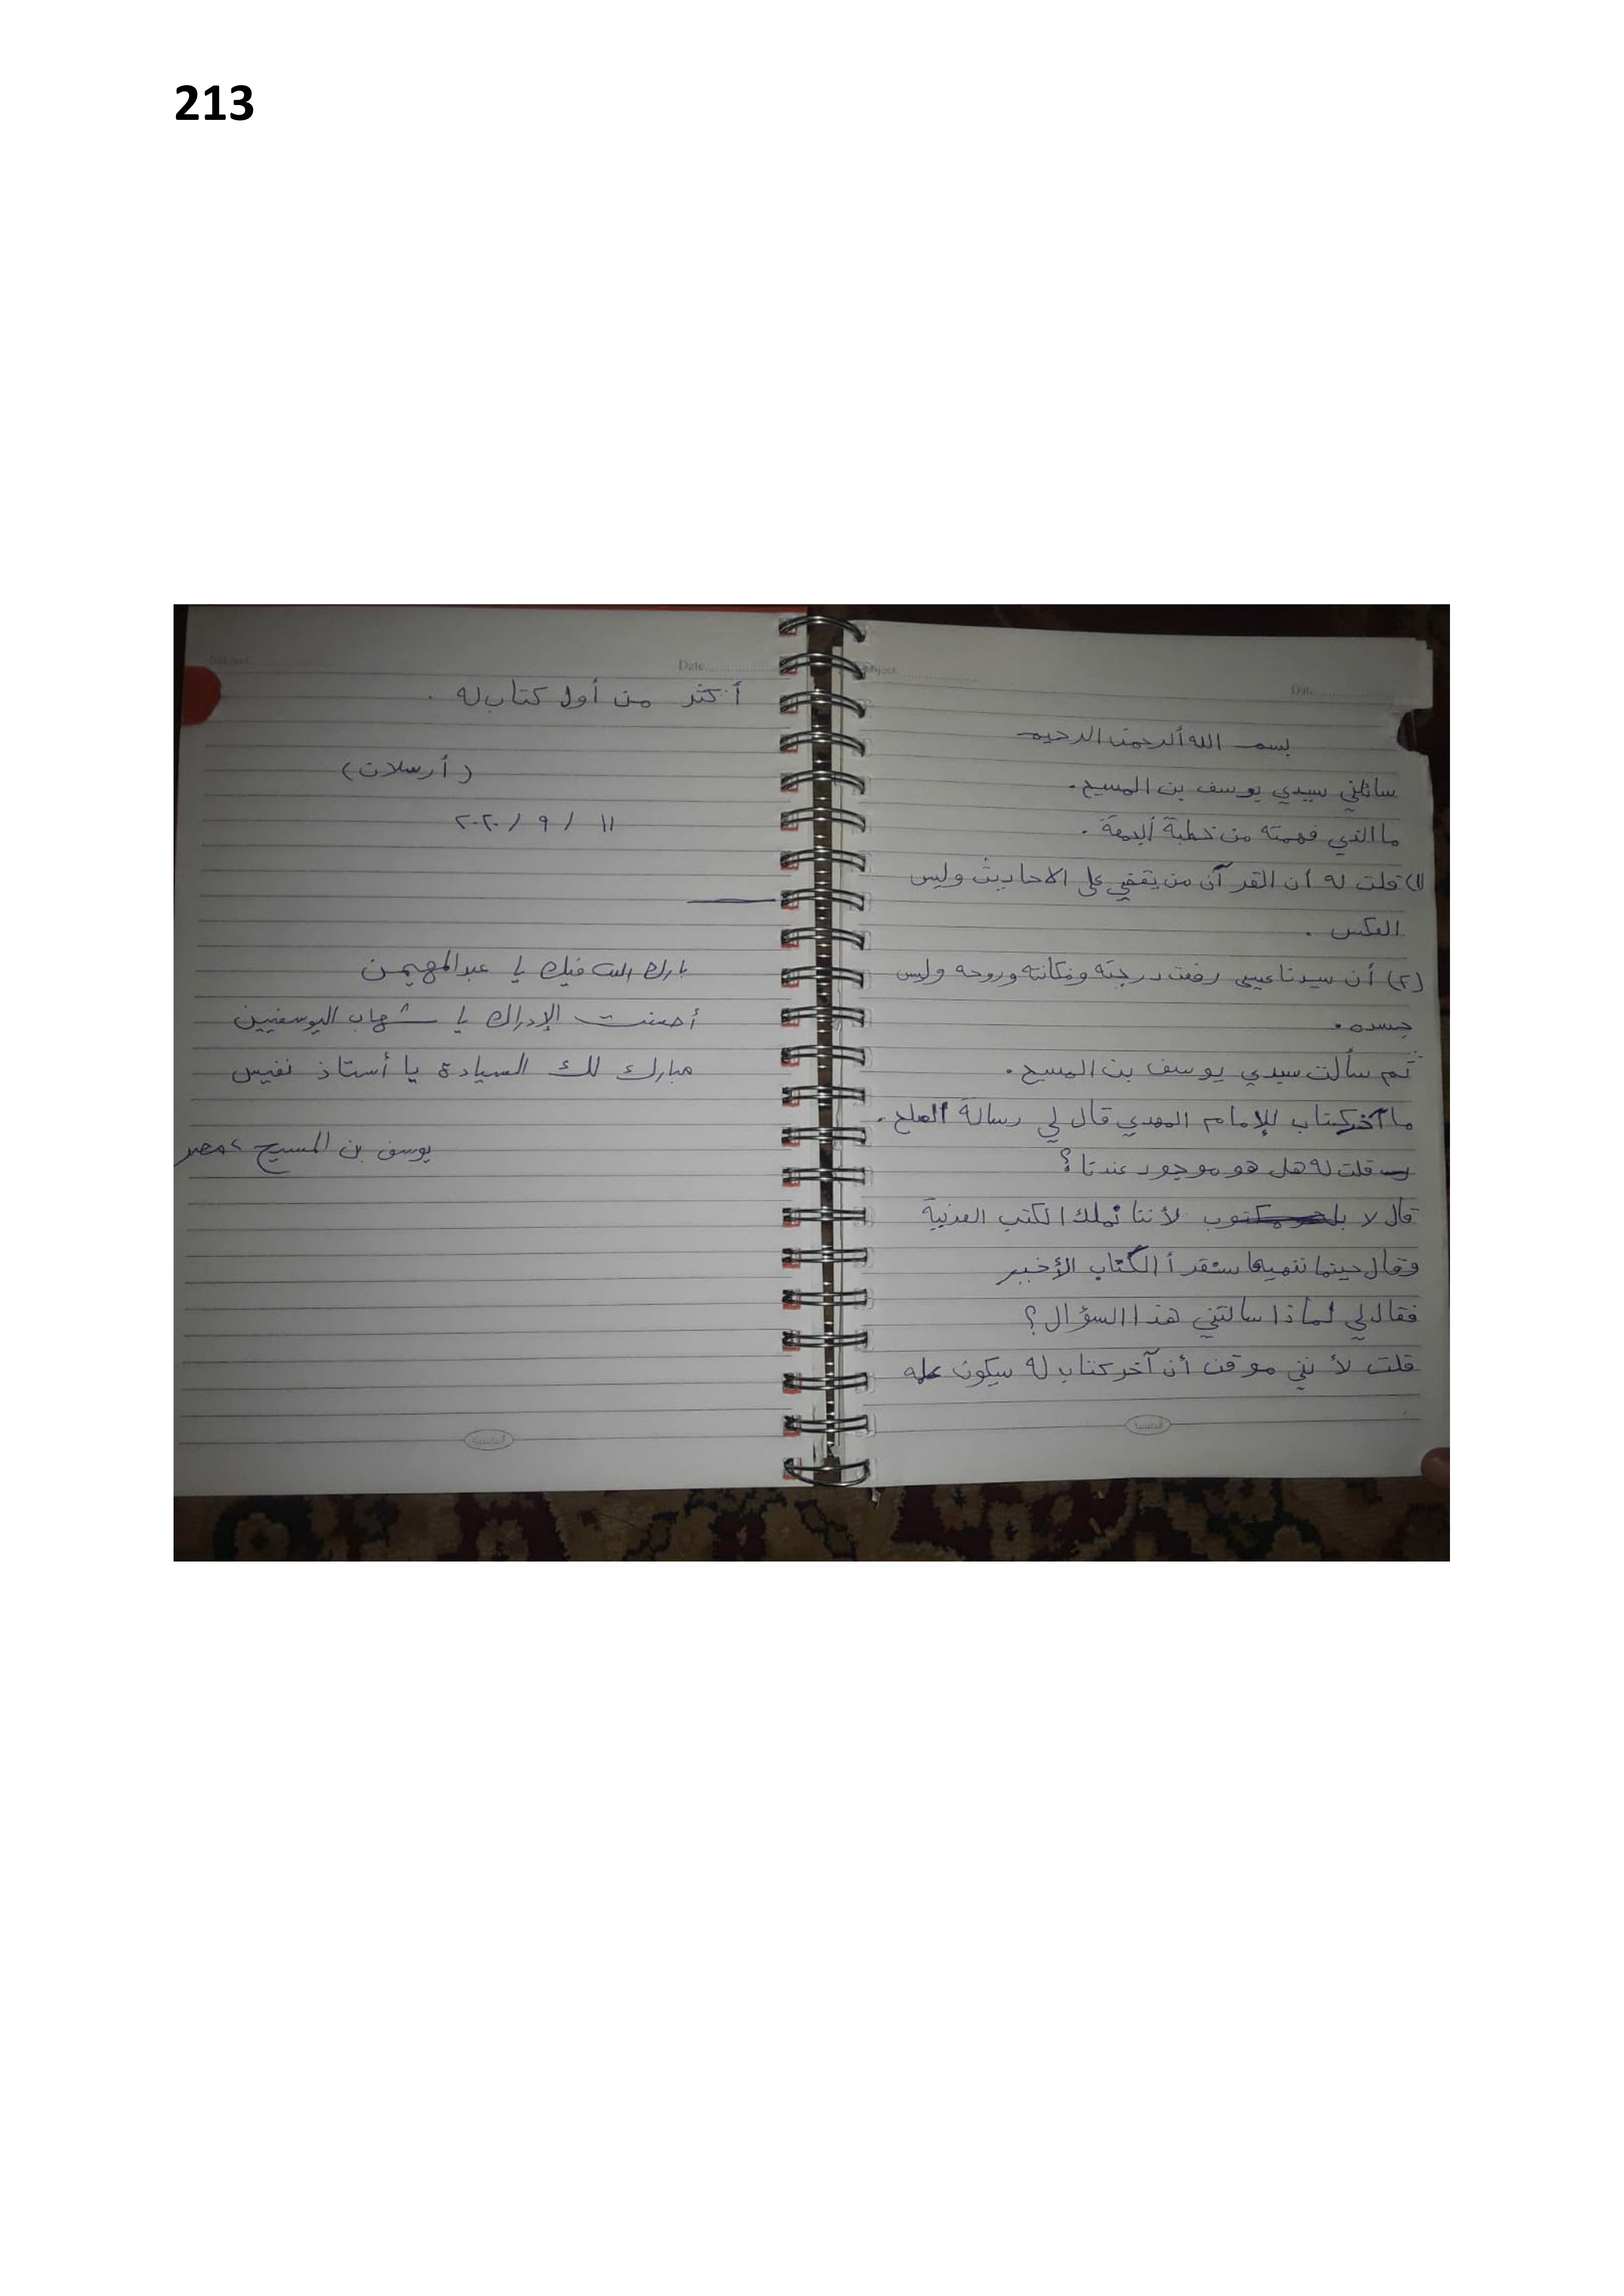 213
Subject
Date
بسم الله ألرحمن الرحيم
سائلني سيدي يوسف بن المسيح.
ما الذي فهمته من خطبة ألجمعة.
(١) قلت له أن القرآن من يقضي على الاحاديث وليس
العكس.
(٢) أن سيدنا عيسى رفعت درجته ومكانته وروحه وليس
جسده.
ثم سألت سيدي يوسف بن المسيح.
ما آخر كتاب للإمام المهدي قال لي رسالة الصلح.
قلت له هل هو موجود عندنا؟
قال لا بل لأننا نملك الكتب العربية
وقال حينما ننهيها سنقرأ الكتاب الأخير
فقال لي لماذا سالتني هذا السؤال؟
قلت لأنني موقن أن آخر كتاب له سيكون علمه
Subject
Date
أكثر من أول كتاب له.
(أرسلان)
١١ / ٩ / ٢٠٢٠
بارك الله فيك يا عبد المهيمن
أحسنت الإدراك يا شهاب اليوسفيين
مبارك لك السيادة يا أستاذ نفيس
يوسف بن المسيح، مصر